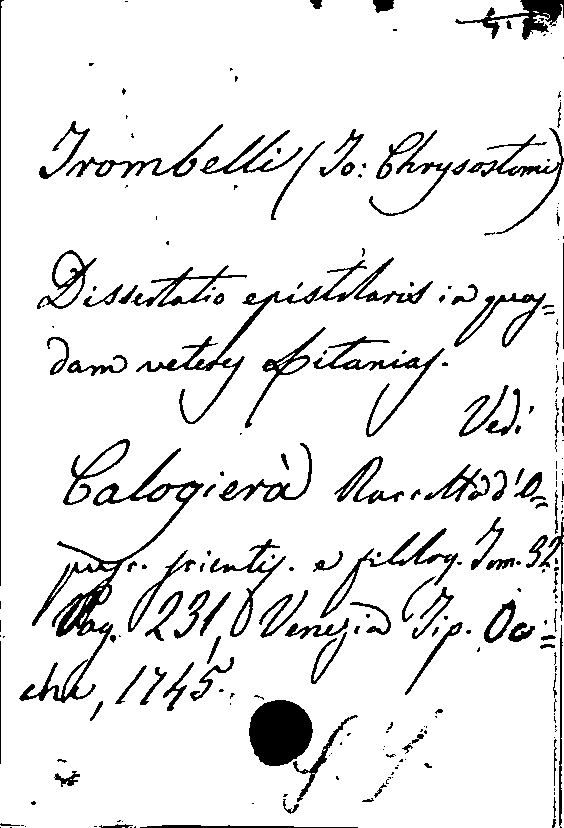 Trombelli (Jo: Chrysostomi)
Dissertatio epistolaris in quas=
dam veteres Litanias.
Vedi
Calogierà Raccolta d'O=
pusc. scientif. e filolog. Tom. 32
Pag. 231, Venezia Tip. Oc=
chi, 1745.
S.